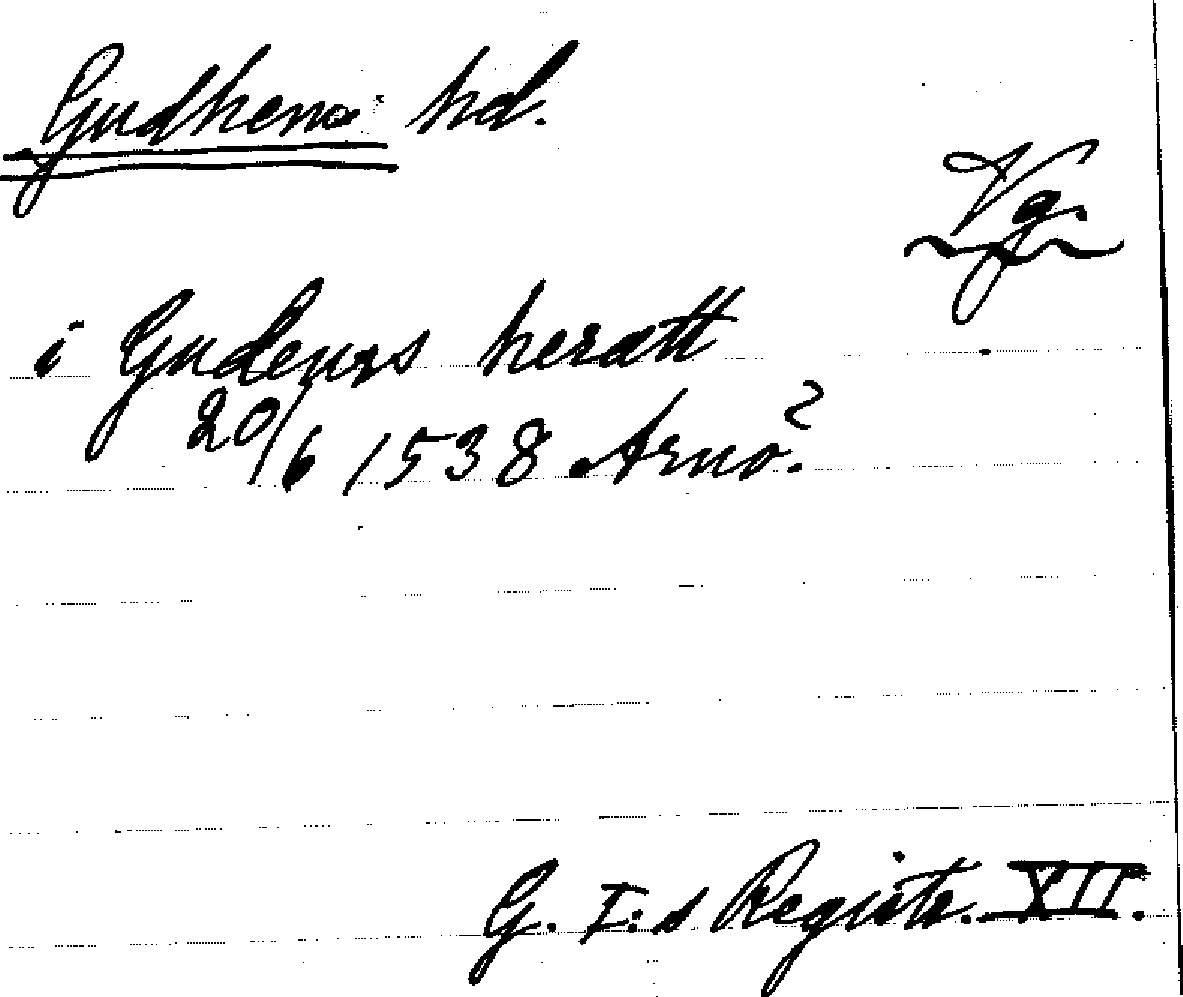 Gudhems hd.
Vg.
i Gudems heratt
20/6 1538 Arnö?
G. I:s Registr. XII.